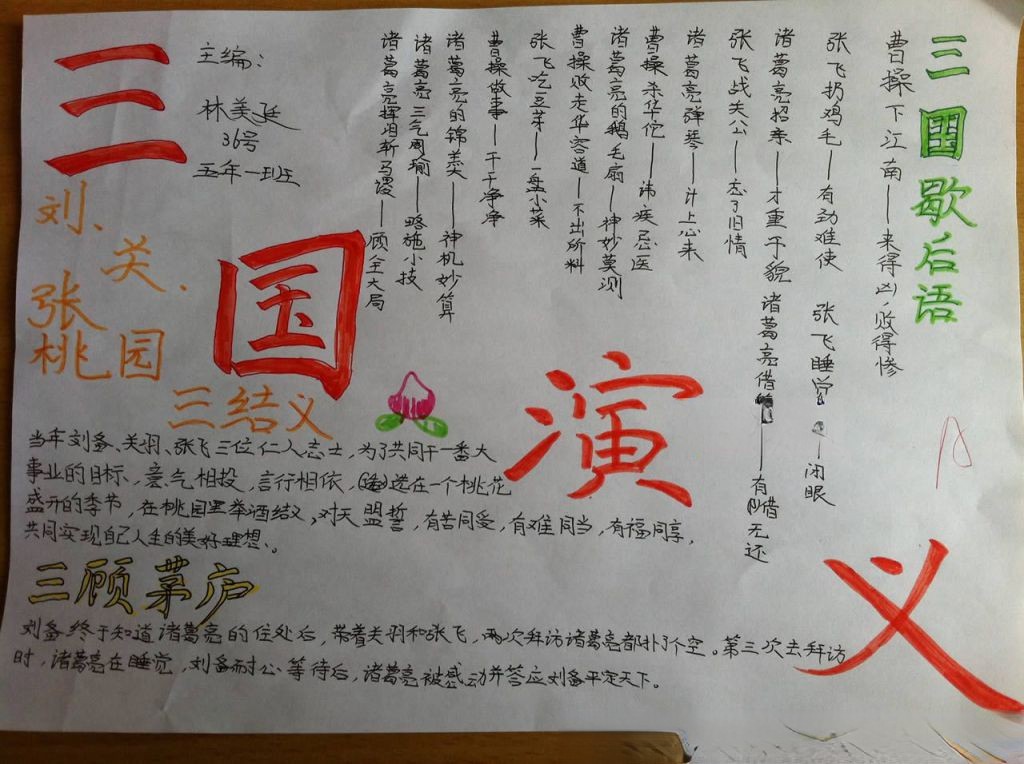 三国演义
主编:
林美延
36号
五年一班
三国歇后语
曹操下江南——来得凶,败得惨
张飞扔鸡毛——有劲难使
张飞睡觉——闭眼
诸葛亮招亲——才重于貌
诸葛亮借——有借无还
张飞战关公——忘了旧情
诸葛亮弹琴——计上心来
曹操杀华佗——讳疾忌医
诸葛亮的鹅毛扇——神妙莫测
曹操败走华容道——不出所料
张飞吃豆芽——一盘小菜
曹操做事——干干净净
诸葛亮的锦囊——神机妙算
诸葛亮三气周瑜——略施小技
诸葛亮挥泪斩马谡——顾全大局
刘、
关、
张
桃园
三结义
当年刘备、关羽、张飞三位仁人志士,为了共同干一番大
事业的目标、意气相投,言行相依,选在一个桃花
盛开的季节,在桃园里举酒结义,对天盟誓,有苦同受,有难同当,有福同享,
共同实现自己人生的美好理想。
三顾茅庐
刘备终于知道诸葛亮的住处后,带着关羽和张飞,两次拜访诸葛亮都扑了个空。第三次去拜访
时,诸葛亮在睡觉,刘备耐公等待后,诸葛亮被感动并答应刘备平定天下。